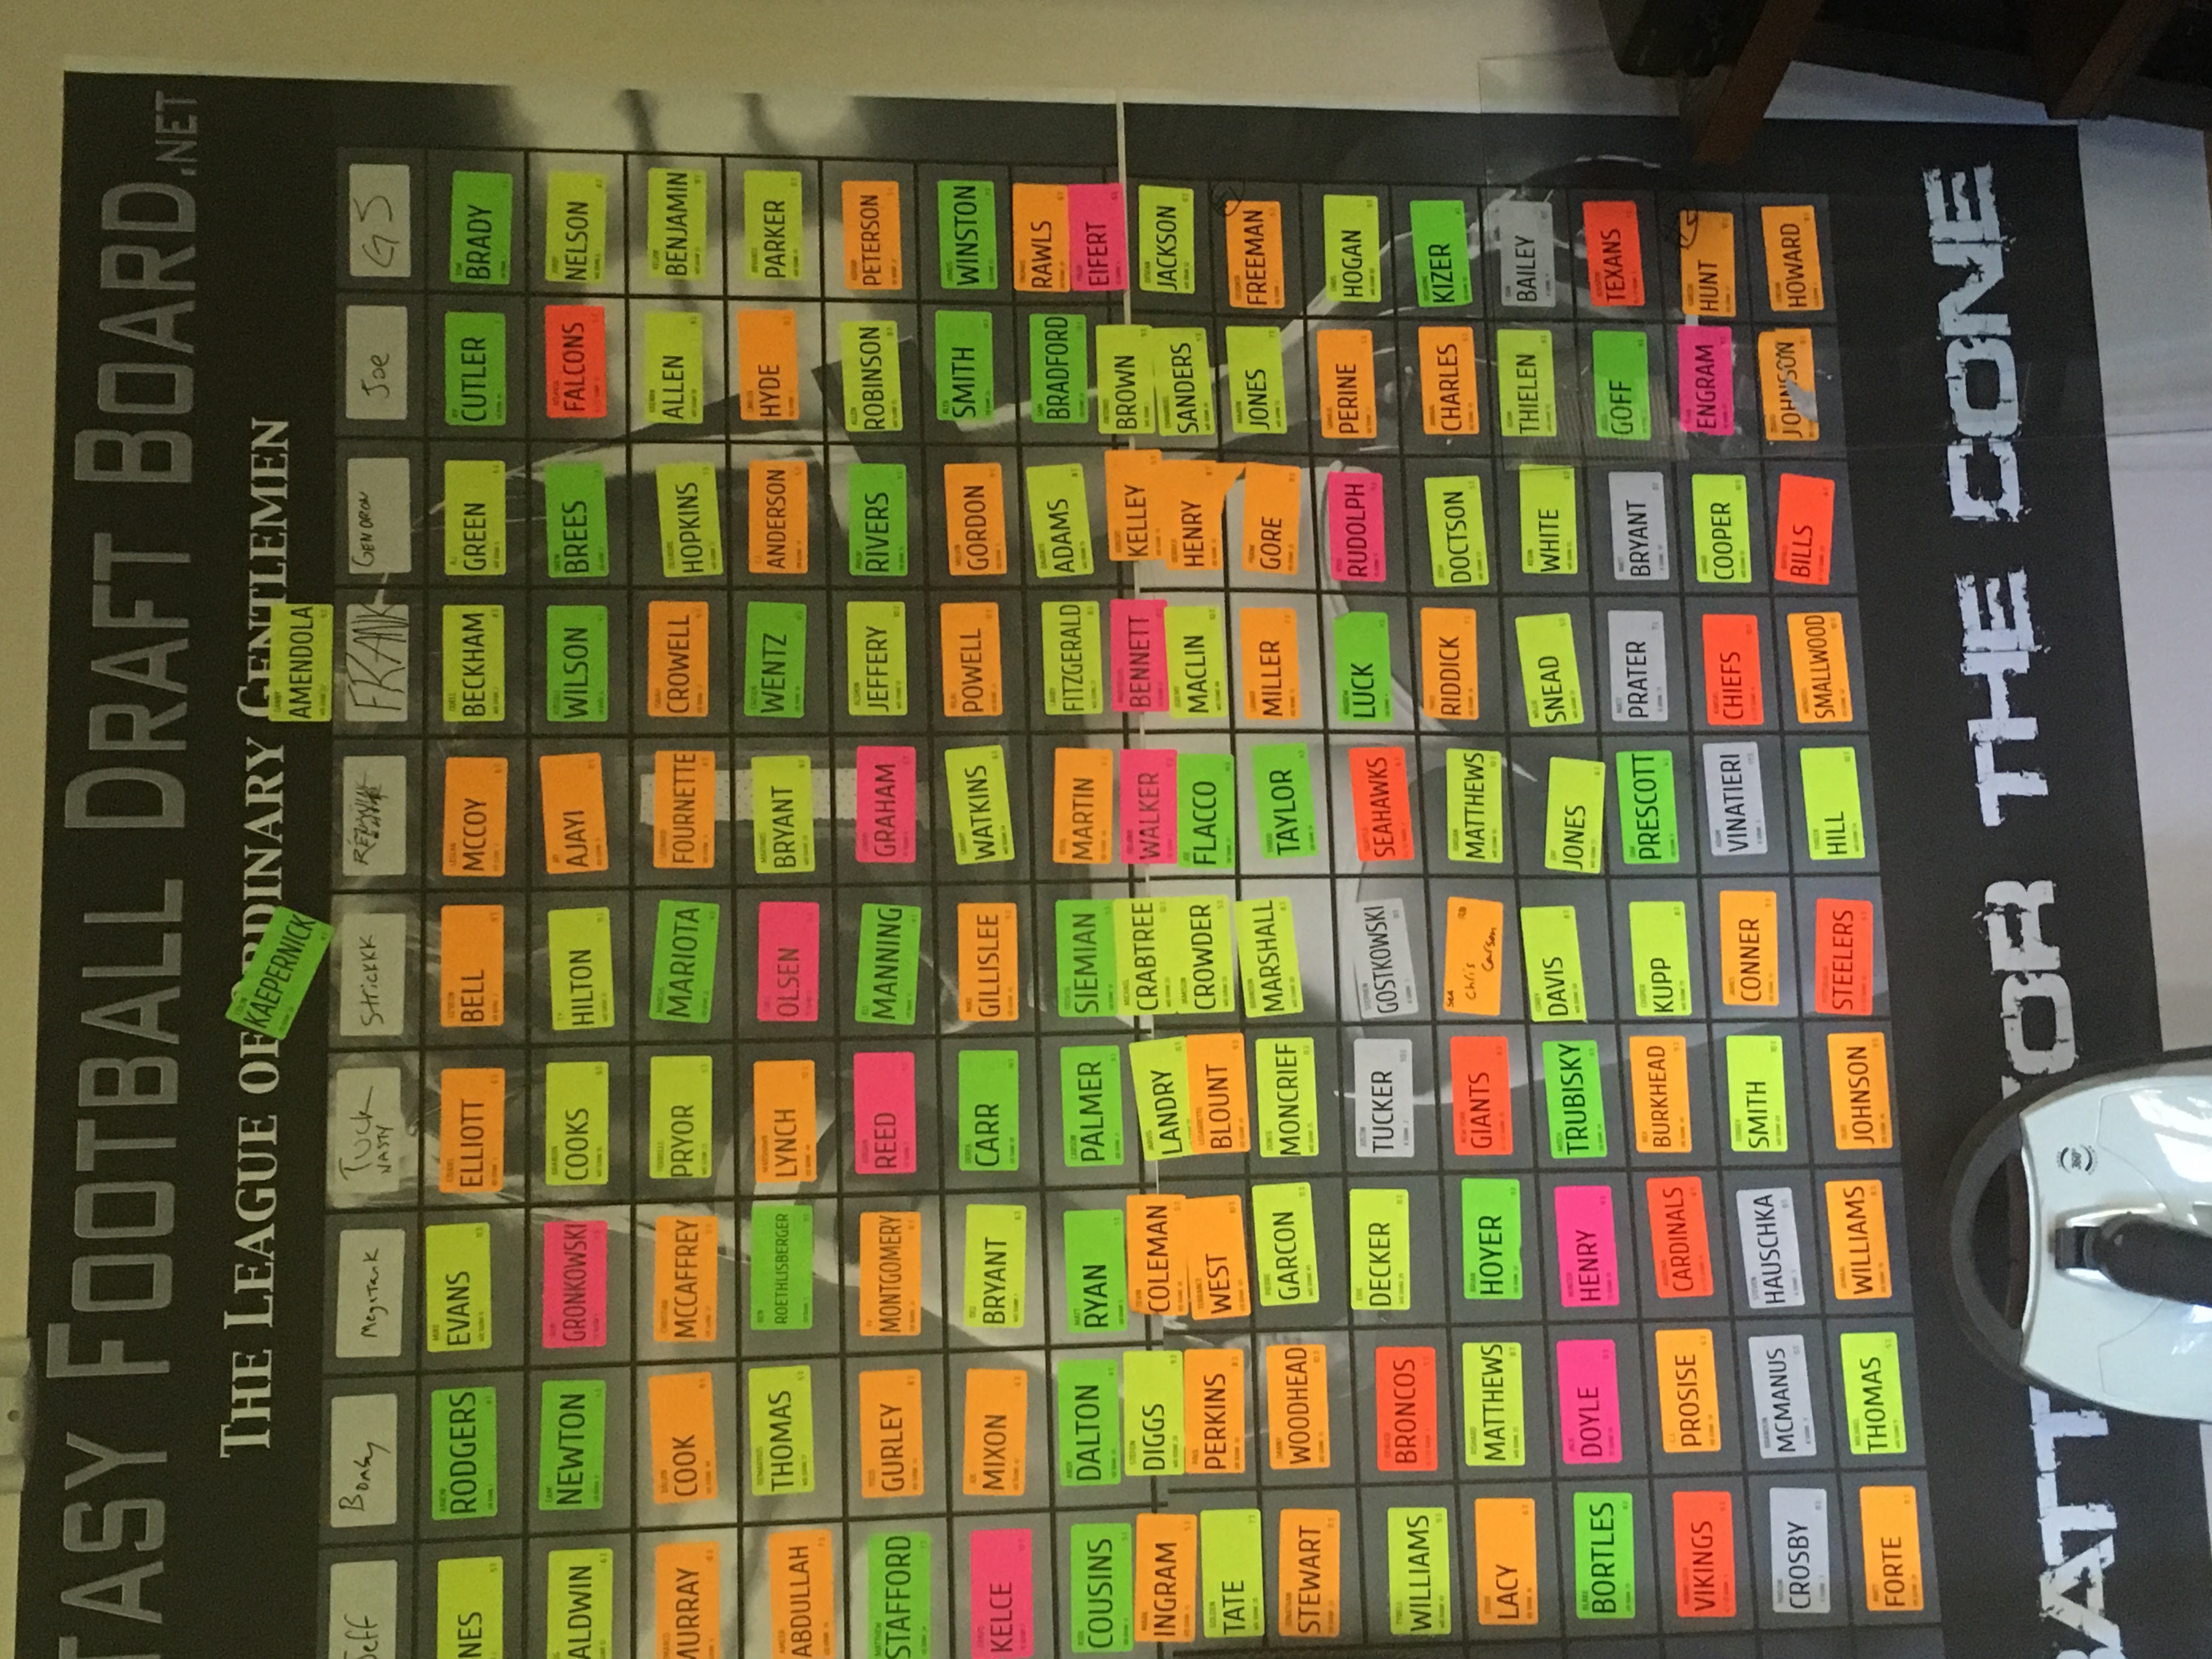 TASY FOOTBALL DRAFT BOARD.NET
THE LEAGUE OF RDINARY GENTLEMEN
KAEPERNICK AMENDOLA
Jeff Bomby MegaTank Tuck NASTY Strickkk FRANK GENDRON Joe GS
NES RODGERS EVANS ELLIOTT BELL MCCOY BECKHAM GREEN CUTLER BRADY
ALDWIN NEWTON GRONKOWSKI COOKS HILTON AJAYI WILSON BREES FALCONS NELSON
MURRAY COOK MCCAFFREY PRYOR MARIOTA FOURNETTE CROWELL HOPKINS ALLEN BENJAMIN
ABDULLAH THOMAS ROETHLISBERGER LYNCH OLSEN BRYANT WENTZ ANDERSON HYDE PARKER
STAFFORD GURLEY MONTGOMERY REED MANNING GRAHAM JEFFERY RIVERS ROBINSON PETERSON
KELCE MIXON BRYANT CARR GILLISLEE WATKINS POWELL GORDON SMITH WINSTON
COUSINS DALTON RYAN PALMER SIEMIAN MARTIN FITZGERALD ADAMS BRADFORD RAWLS
INGRAM DIGGS COLEMAN LANDRY CRABTREE WALKER BENNETT KELLEY BROWN EIFERT
TATE PERKINS WEST BLOUNT CROWDER FLACCO MACLIN HENRY SANDERS JACKSON
STEWART WOODHEAD GARCON MONCRIEF MARSHALL TAYLOR MILLER GORE JONES FREEMAN
WILLIAMS BRONCOS DECKER TUCKER GOSTKOWSKI SEAHAWKS LUCK RUDOLPH PERINE HOGAN
LACY MATTHEWS HOYER GIANTS Sea RB Chris Carson MATTHEWS RIDDICK DOCTSON CHARLES KIZER
BORTLES DOYLE HENRY TRUBISKY DAVIS JONES SNEAD WHITE THIELEN BAILEY
VIKINGS PROSISE CARDINALS BURKHEAD KUPP PRESCOTT PRATER BRYANT GOFF TEXANS
CROSBY MCMANUS HAUSCHKA SMITH CONNER VINATIERI CHIEFS COOPER ENGRAM HUNT
FORTE THOMAS WILLIAMS JOHNSON STEELERS HILL SMALLWOOD BILLS JOHNSON HOWARD
BATT FOR THE CONE
360°